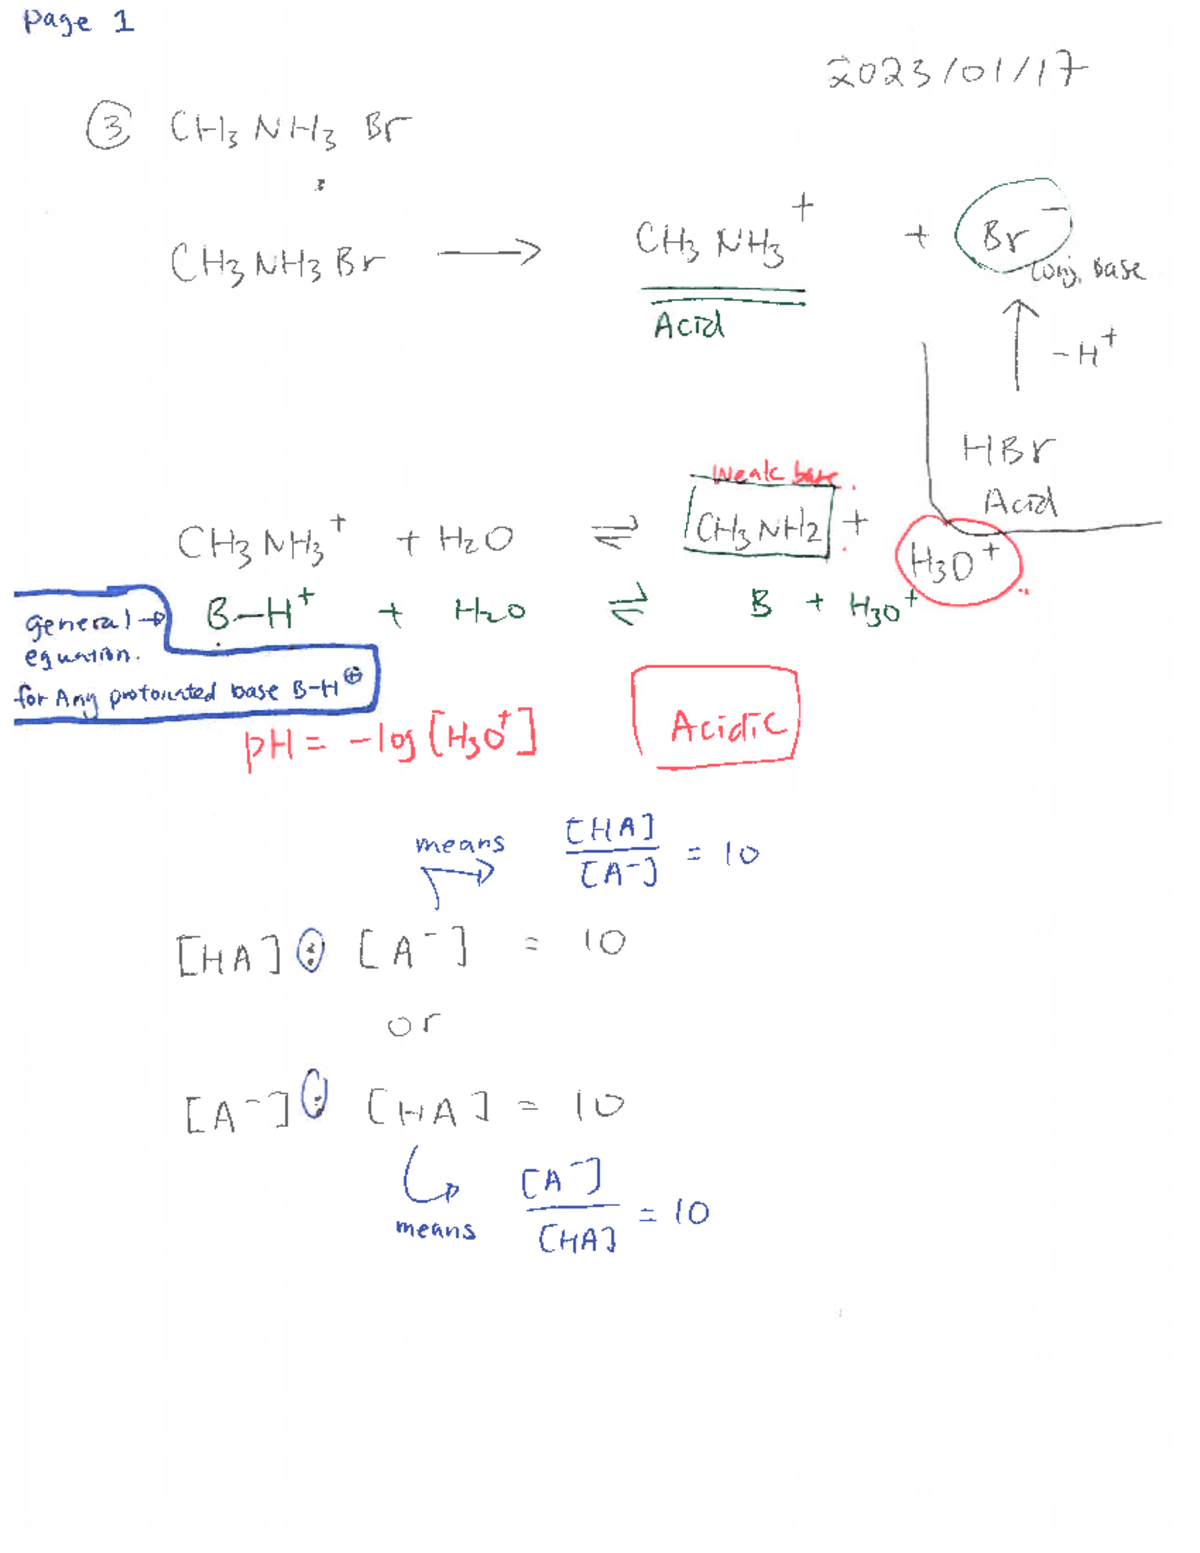 Page 1
2023/01/17
③ CH3 NH3 Br
CH3NH3Br ⟶ CH3 NH3⁺ + Br⁻
Conj. Base
Acid
-H⁺
HBr
Acid
Weak base.
CH3NH3⁺ + H2O ⇌ CH3NH2 + H3O⁺
general → B-H⁺ + H2O ⇌ B + H3O⁺
equation.
for Any protonated base B-H⊕
pH = -log [H3O⁺] Acidic
means [HA]/[A⁻] = 10
[HA] : [A⁻] = 10
or
[A⁻] : [HA] = 10
means [A⁻]/[HA] = 10